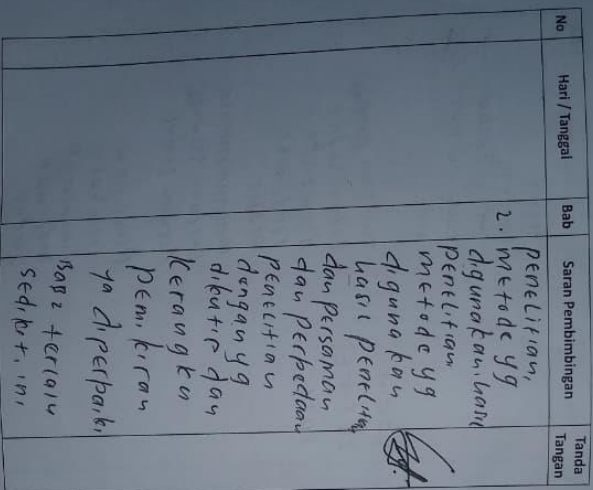 No Hari / Tanggal Bab Saran Pembimbingan Tanda Tangan
penelitian,
2. metode yg
digunakan, hasil
penelitian
metode yg
digunakan
hasil penelitian
dan persaman
dan perbedaan
penelitian
dengan yg
dikutip dan
kerangka
pemikiran
ya diperbaiki
Bab 2 terlalu
sedikit ini